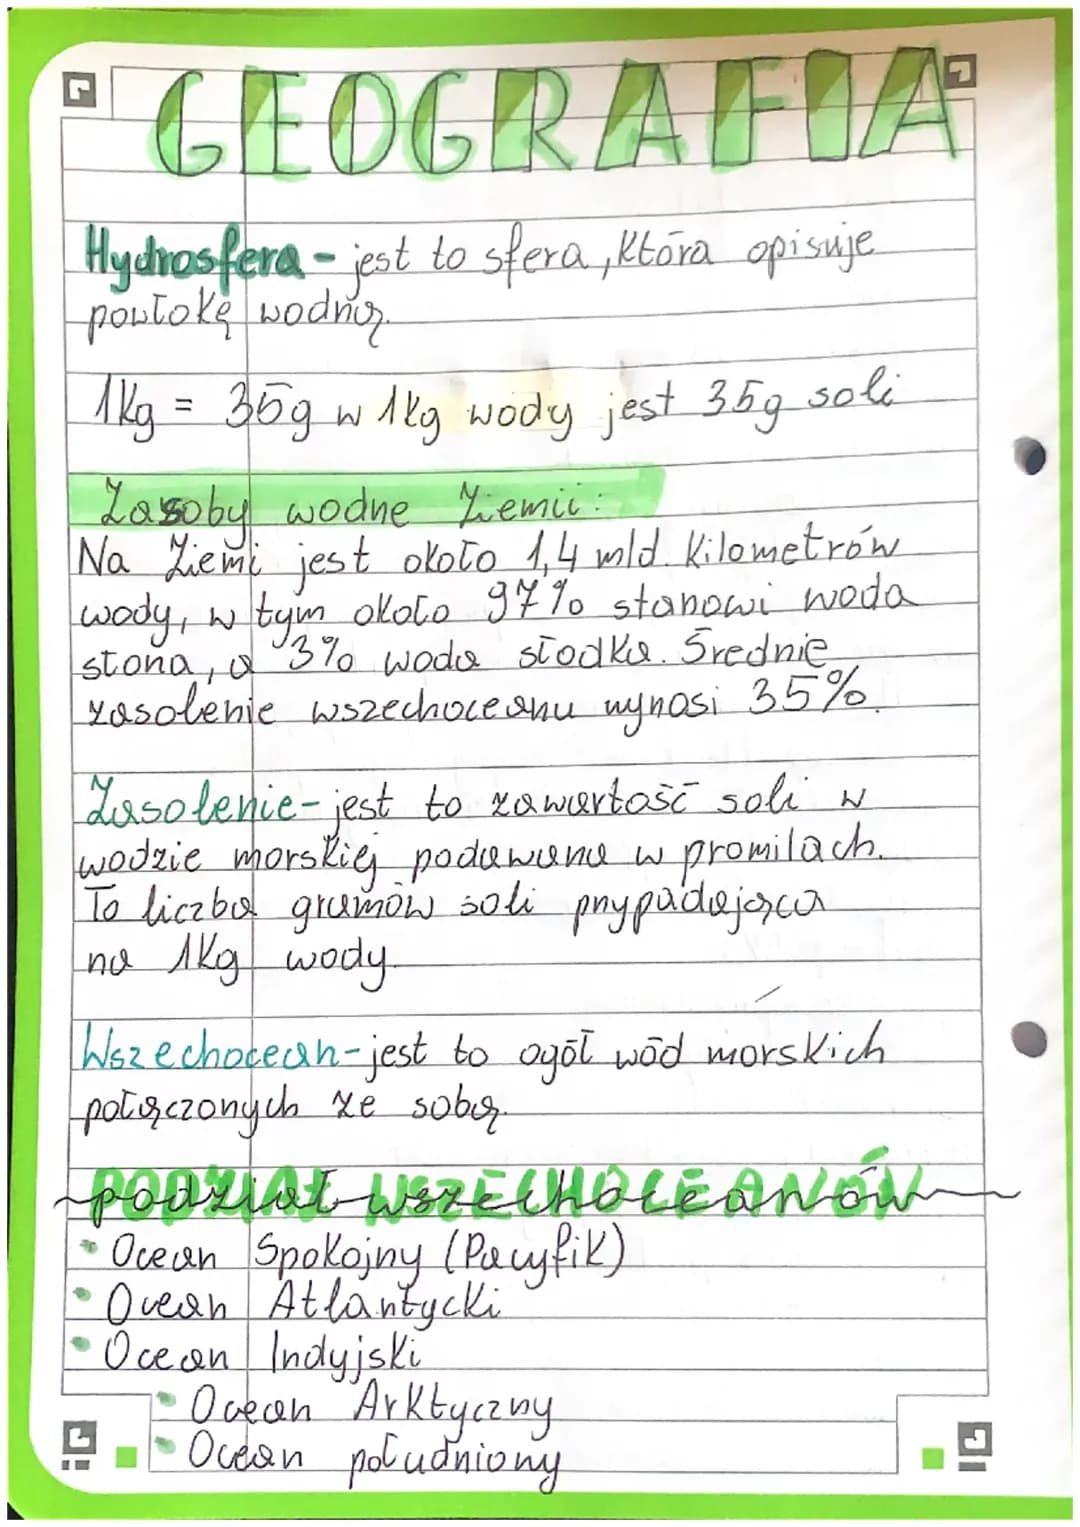 GEOGRAFIA
Hydrosfera - jest to sfera, która opisuje
powłokę wodną.
1kg = 35g w 1kg wody jest 35g soli
Zasoby wodne Ziemii:
Na Ziemi jest około 1,4 mld. kilometrów
wody, w tym około 97% stanowi woda
słona, a 3% woda słodka. Średnie
zasolenie wszechoceanu wynosi 35%.
Zasolenie - jest to zawartość soli w
wodzie morskiej podawana w promilach.
To liczba gramów soli przypadająca
na 1kg wody.
Wszechocean - jest to ogół wód morskich
połączonych ze sobą.
podział wszechoceanów
• Ocean Spokojny (Pacyfik)
• Ocean Atlantycki
• Ocean Indyjski
• Ocean Arktyczny
• Ocean południony